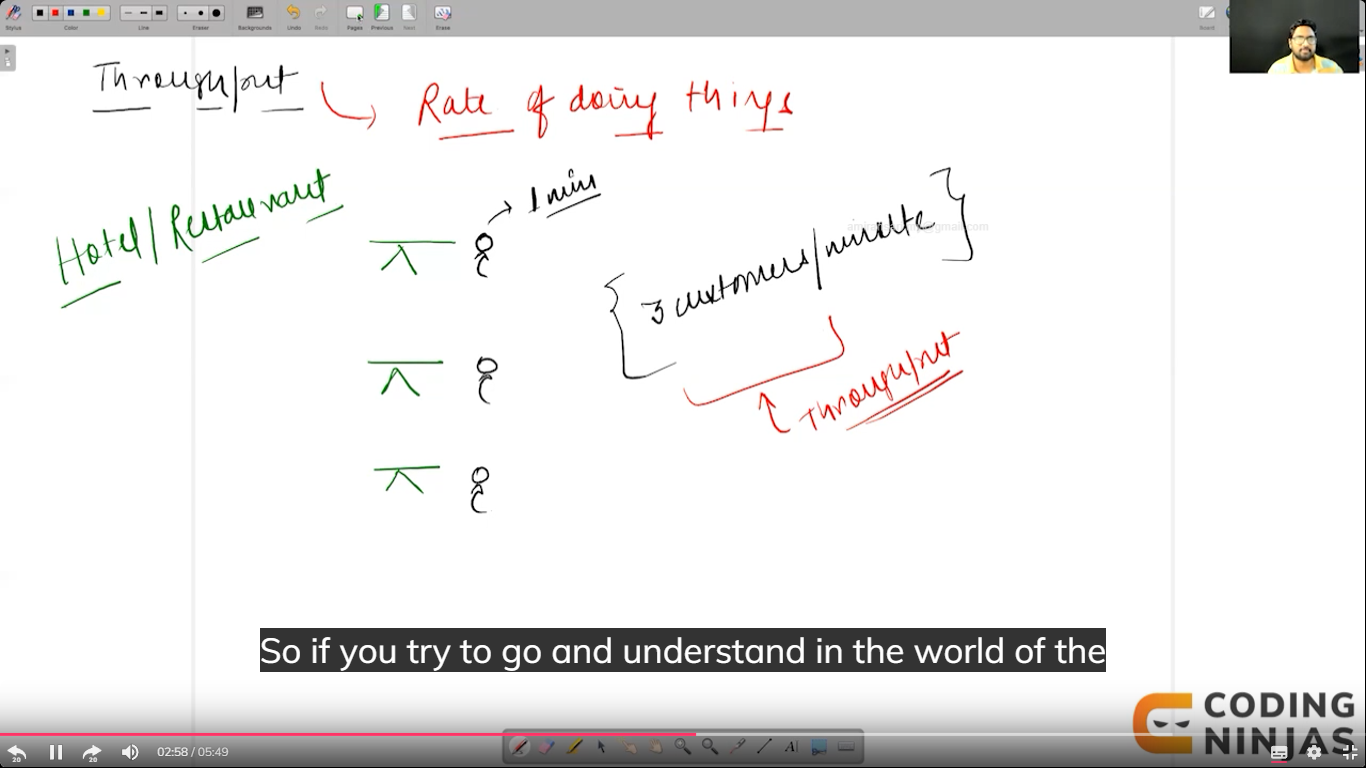 Stylus
Color
Line
Eraser
Backgrounds
Undo
Redo
Pages
Previous
Next
Erase
Board
Throughput
Rate of doing things
Hotel/Restaurant
1 min
3 customers/minute
Throughput
So if you try to go and understand in the world of the
CODING
NINJAS
20
20
02:58 / 05:49